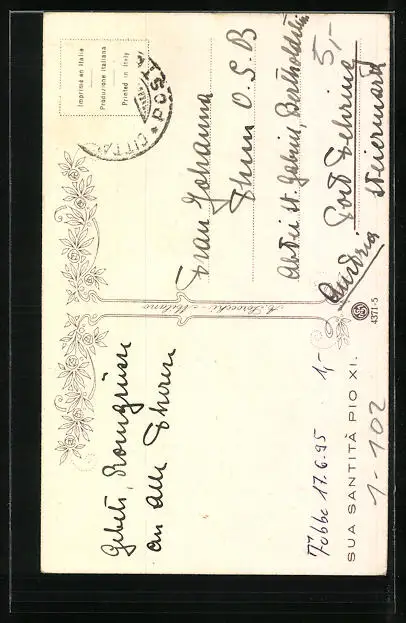 Gebets, Romgrüsse
an alle Ihrer
Imprimé en Italie
Produzione Italiana
Printed in Italy
POSTE
CITTÀ
Frau Johanna
Thun O.S.B
Abtei St. Gabriel, Bertholdstein
Post Fehring
Steiermark
Austria
5,-
A. Scrocchi - Milano
4371-5
7bbc 17.6.95 1,-
SUA SANTITÀ PIO XI.
1-102